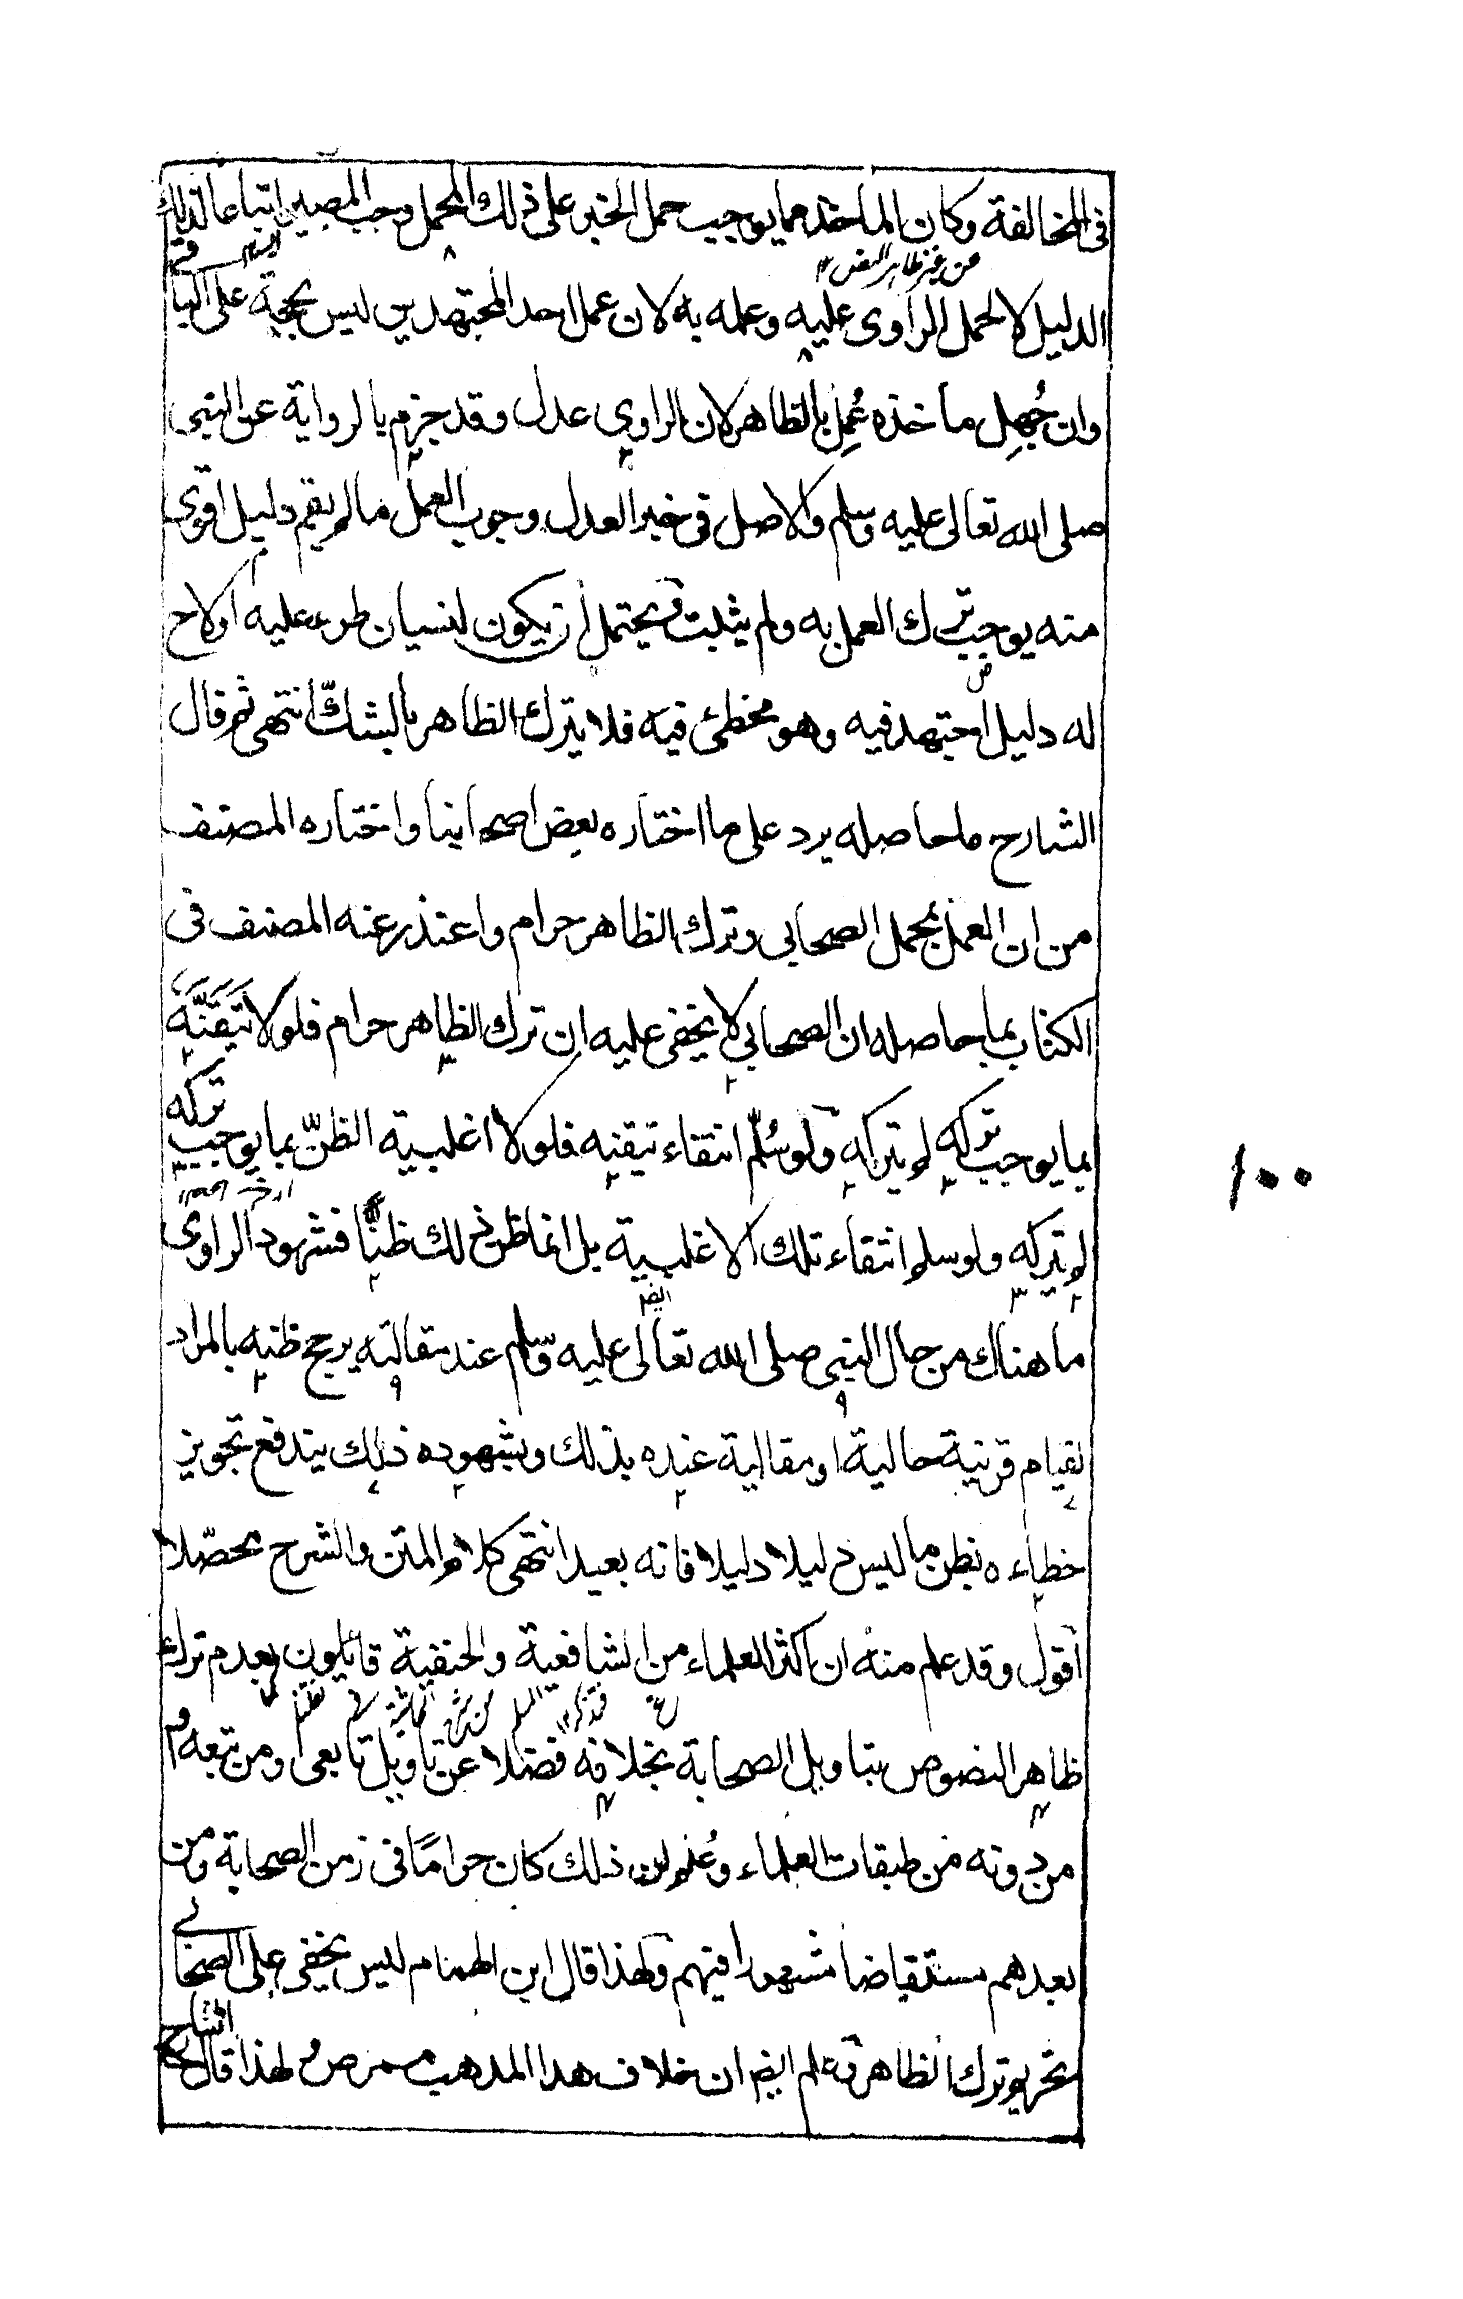 فى المخالفة وكان المأخذ مما يوجب حمل الخبر على ذلك المحمل وجب المصير اتباعا لذلك
الدليل لا لحمل الراوى عليه وعمله به لان عمل احد المجتهدين ليس بحجة على الباقى
وان جُهِل مأخذه عُمِل بالظاهر لان الراوى عدل وقد جزم بالرواية عن النبى
صلى الله تعالى عليه وسلم والاصل فى خبر العدل وجوب العمل ما لم يقم دليل اقوى
منه يوجب ترك العمل به ولم يثبت ويحتمل ان يكون لنسيان طرء عليه او لاح
له دليل اجتهد فيه وهو مخطئ فيه فلا يترك الظاهر بالشكّ انتهى ثم قال
الشارح ما حاصله يرد على ما اختاره بعض اصحابنا واختاره المصنف
من ان العمل بمحمل الصحابى وترك الظاهر حرام واعتذر عنه المصنف فى
الكتاب بما حاصله ان الصحابى لا يخفى عليه ان ترك الظاهر حرام فلولا تَيَقُّنُه
بما يوجب تركه لم يتركه ولو سُلّم انتفاء تيقنه فلولا اغلبية الظنّ بما يوجب تركه
لم يتركه ولو سلم انتفاء تلك الاغلبية بل انما ظن ذلك ظنًّا فشهود الراوى
ما هناك من حال النبى صلى الله تعالى عليه وسلم عند مقالته يرجح ظنه بالمراد
لقيام قرينة حالية او مقالية عنده بذلك وبشهوده ذلك يندفع تجويز
خطاءه بظن ما ليس دليلا دليلا فانه بعيد انتهى كلام المتن والشرح محصّلا
اقول وقد علم منه ان اكثر العلماء من الشافعية والحنفية قائلون بعدم ترك
ظاهر النصوص بتاويل الصحابة بخلافه فضلا عن تاويل تابعى او من تبعه
من دونه من طبقات العلماء وعُلم ان ذلك كان حرامًا فى زمن الصحابة ومن
بعدهم مستفاضا مشهورا فيهم ولهذا قال ابن الهمام ليس يخفى على الصحابى
تحريم ترك الظاهر وعلم ايضا ان خلاف هذا المذهب ممرض ولهذا قال الشارح
١٠٠